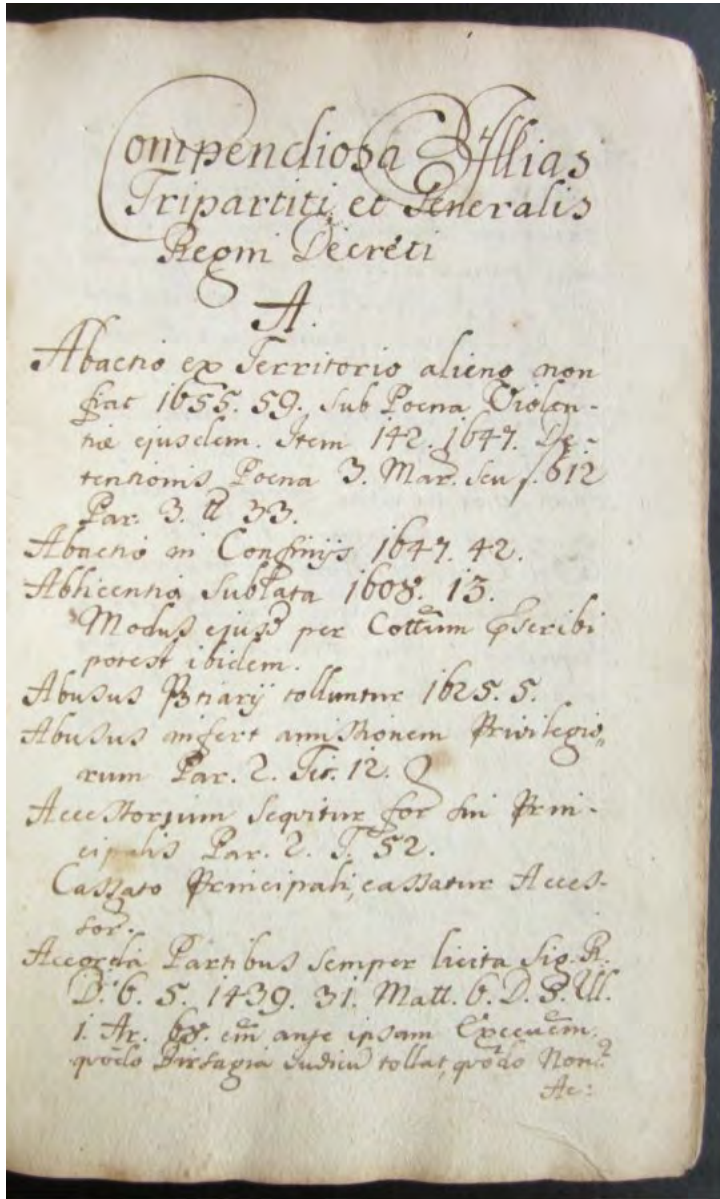 Compendiosa Illias
Tripartiti et Generalis
Regni Decreti
A.
Abactio ex Territorio alieno non
fiat 1655. 59. sub Poena Violen-
tiæ ejusdem. Item 142. 1647. De-
tentionis Poena 3. Mar. seu f. 612
Par. 3. tt 33.
Abactio in Confinijs 1647. 42.
Ablicentia Sublata 1608. 13.
Modus ejus per Cottum pscribi
potest ibidem.
Abusus tolluntur 1625. 5.
Abusus infert amissionem Privilegio„
rum Par. 2. Tit. 12.
Accessorium sequitur for sui Prin-
cipalis Par. 2. T. 52.
Cassato Principali, cassatur Acces-
sor.
Accorda Partibus semper licita Sig. R.
D. 6. 5. 1439. 31. Matt. 6. D. 3. Ul.
1. Ar. 68. ante ipsam
tollat, quodo Non
Ac: